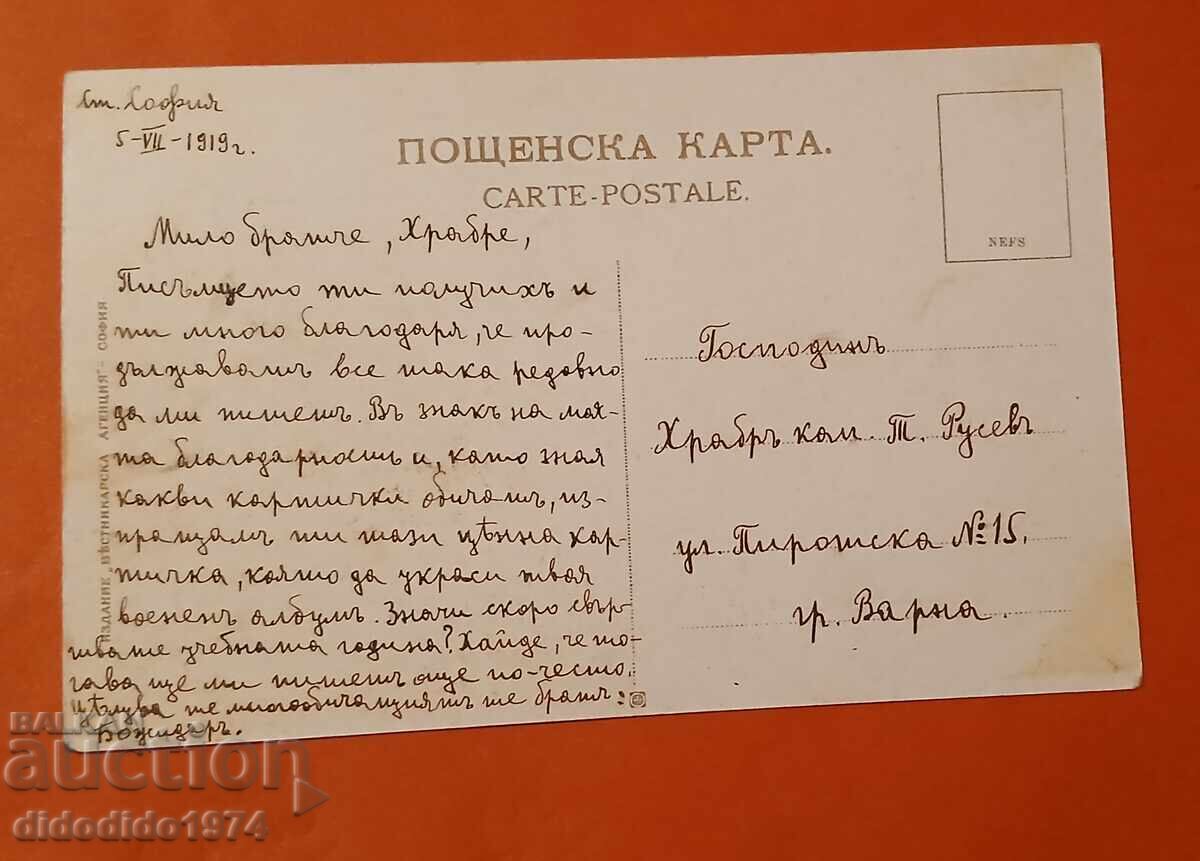 Ст. София
5-VII-1919 г.
ПОЩЕНСКА КАРТА.
CARTE-POSTALE.
NEFS
Мило братче, Храбре,
Писъмцето ти получихъ и
ти много благодаря, че про-
дължавашъ все така редовно
да ми пишешъ. Въ знакъ на моя-
та благодарность и, като зная
какви картички обичашъ, из-
пращамъ ти тази цѣнна кар-
тичка, която да украси твоя
воененъ албумъ. Значи скоро свър-
швате учебната година? Хайде, че то-
гава ще ми пишешъ още по-често.
Цѣлува те многообичащиятъ те братъ:
Божидаръ.
ИЗДАНИЕ „ВѢСТНИКАРСКА АГЕНЦИЯ“ - СОФИЯ
Господинъ
Храбръ кап. Т. Русевъ
ул. Пиротска № 15.
гр. Варна.
BALKAN
auction
didodido1974